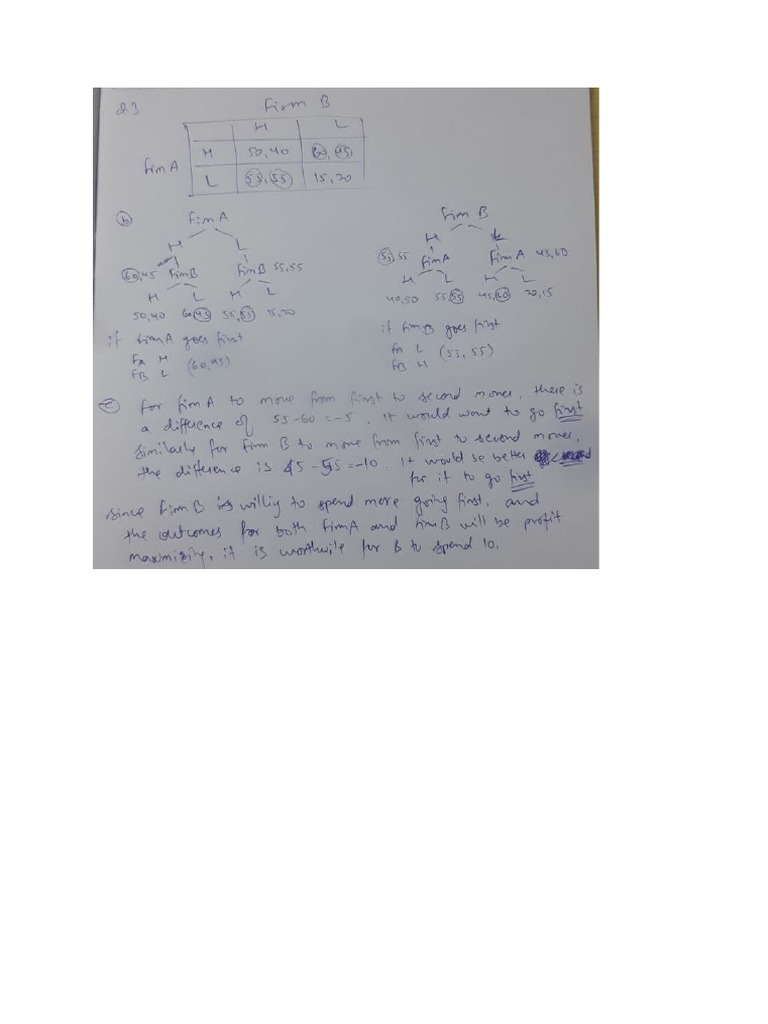 Q3
Firm B
H L
Firm A H 50,40 60,45
L 55,55 15,20
b
Firm A
H L
60,45 Firm B Firm B 55,55
H L H L
50,40 60,45 55,55 15,20
if Firm A goes first
FA H
FB L (60,45)
Firm B
H L
55,55 Firm A Firm A 45,60
H L H L
40,50 55,55 45,60 20,15
if Firm B goes first
FA L
FB H (55,55)
c For firm A to move from first to second mover, there is
a difference of 55-60=-5. It would want to go first
similarly for firm B to move from first to second mover,
the difference is 45-55=-10. It would be better
for it to go first
since firm B is willig to spend more going first, and
the outcomes for both firm A and firm B will be profit
maximizig, it is worthwile for B to spend 10.